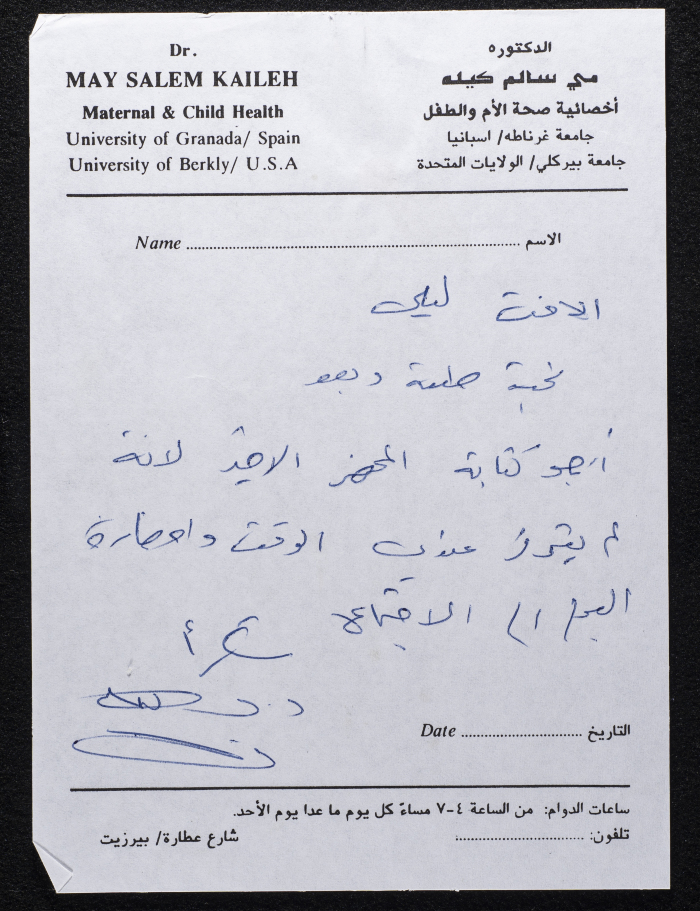 Dr.
MAY SALEM KAILEH
Maternal & Child Health
University of Granada/ Spain
University of Berkly/ U.S.A
الدكتوره
مي سالم كيله
أخصائية صحة الأم والطفل
جامعة غرناطه/ اسبانيا
جامعة بيركلي/ الولايات المتحدة
Name ........ الاسم
الاخت ليلى
تحية طيبة وبعد
أرجو كتابة المحضر الاخير لانه
لم يتوفر عندي الوقت واحضاره
اليوم الى الاجتماع
شكراً
د. مي
Date ........ التاريخ
ساعات الدوام: من الساعة ٤-٧ مساءً كل يوم ما عدا يوم الأحد.
تلفون: ........
شارع عطارة/ بيرزيت